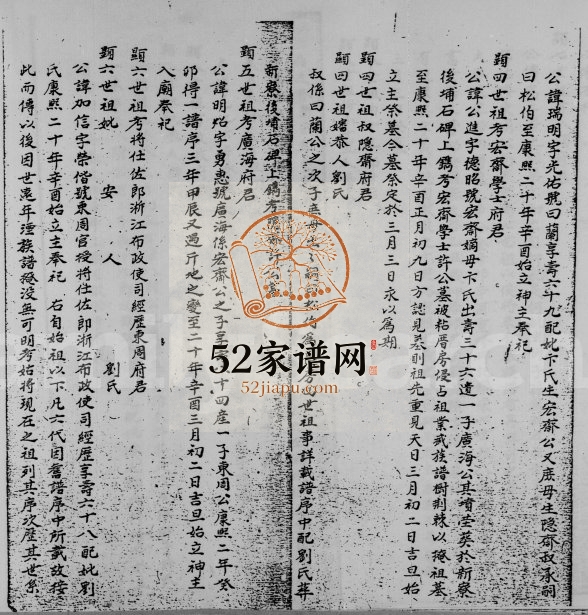 公諱瑞明字光佑號曰蘭享壽六十九配妣卞氏生宏齋公又庶母生隐齋叔承嗣
曰松伯至康熙二十年辛酉始立神主奉祀
顯四世祖考宏齋學士府君
公諱公進字德昭號宏齋嫡母卞氏出壽三十六遺一子廣海公其墳塋葬於新寮
後埔石碑上鐫考宏齋學士許公墓被粘厝房侵占祖業戕族譜樹荆棘以掩祖墓
至康熙二十年辛酉正月初九日方認見墓則祖先重見天日三月初二日吉旦始
立主祭墓今墓祭定於三月三日永以為期
顯四世祖叔隱齋府君
顯四世祖嬸恭人劉氏
叔係曰蘭公之次子
世祖事詳載譜序中配劉氏葬
新寮後埔石碑上鐫考隱齋許公
顯五世祖考廣海府君
公諱明
字勇惠號廣海係宏齋公之子享
十四産一子東周公康熙二年癸
卯得一譜序三年甲辰又遇斤地之變至二十年辛酉三月初二日吉旦始立神主
入廟奉祀
顯六世祖考將仕佐郎浙江布政使司經歷東周府君
顯六世祖妣 安 人 劉氏
公諱加信字榮偕號東周官授將仕佐郎浙江布政使司經歷享壽六十八配妣劉
氏康熙二十年辛酉始立主奉祀 右自始祖以下凡六代因舊譜序中所載故接
此而傳以後因世遠年湮族譜廢没無可明考始將現在之祖列其序次歷其世系
52家谱网
52jiapu.com